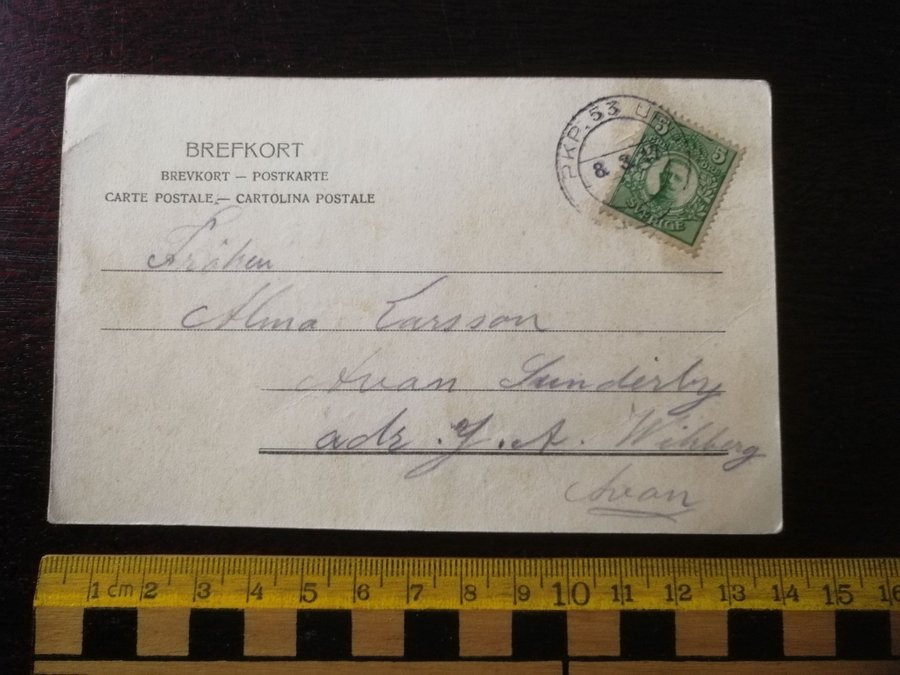 BREFKORT
BREVKORT — POSTKARTE
CARTE POSTALE — CARTOLINA POSTALE
PKP. 53 U
8 3
5
SVERIGE
Fröken
Alma Larsson
Avan Sunderby
adr. J. A. Wikberg
Avan
1 cm 2 3 4 5 6 7 8 9 10 11 12 13 14 15 16